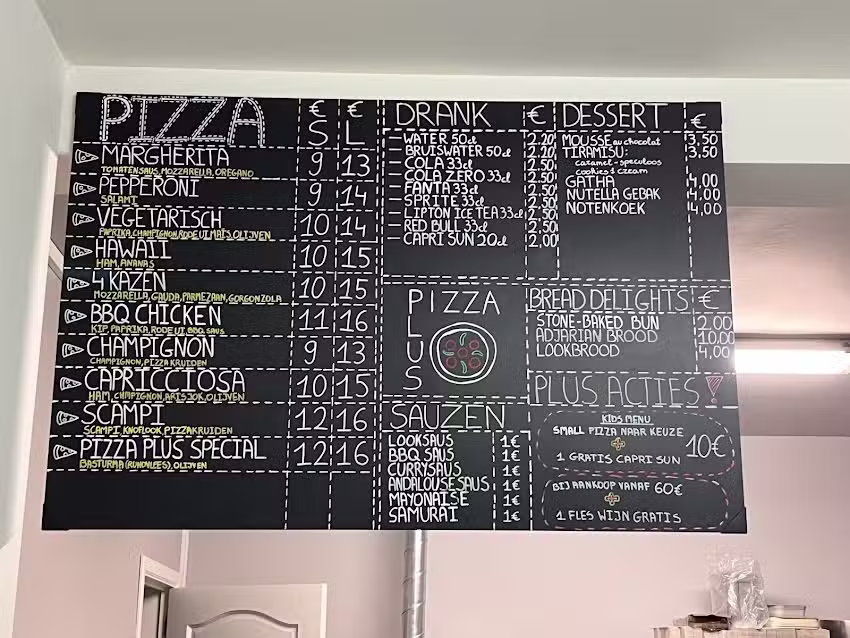 PIZZA € S € L
MARGHERITA 9 13
TOMATENSAUS, MOZZARELLA, OREGANO
PEPPERONI 9 14
SALAMI
VEGETARISCH 10 14
PAPRIKA, CHAMPIGNON, RODE UI, MAÏS, OLIJVEN
HAWAII 10 15
HAM, ANANAS
4 KAZEN 10 15
MOZZARELLA, GAUDA, PARMEZAAN, GORGONZOLA
BBQ CHICKEN 11 16
KIP, PAPRIKA, RODE UI, BBQ SAUS
CHAMPIGNON 9 13
CHAMPIGNON, PIZZA KRUIDEN
CAPRICCIOSA 10 15
HAM, CHMPIGNON, ARTISJOK, OLIJVEN
SCAMPI 12 16
SCAMPI, KNOFLOOK, PIZZAKRUIDEN
PIZZA PLUS SPECIAL 12 16
BASTURMA (RUNDVLEES), OLIJVEN
DRANK €
WATER 50cl 2,20
BRUISWATER 50cl 2,20
COLA 33cl 2,50
COLA ZERO 33cl 2,50
FANTA 33cl 2,50
SPRITE 33cl 2,50
LIPTON ICE TEA 33cl 2,50
RED BULL 33cl 2,50
CAPRI SUN 20cl 2,00
DESSERT €
MOUSSE au chocolat 3,50
TIRAMISU: 3,50
caramel-speculoos
cookies & cream
GATHA 4,00
NUTELLA GEBAK 4,00
NOTENKOEK 4,00
PIZZA
PLUS
BREAD DELIGHTS €
STONE-BAKED BUN 2,00
ADJARIAN BROOD 10,00
LOOKBROOD 4,00
SAUZEN
LOOKSAUS 1€
BBQ SAUS 1€
CURRYSAUS 1€
ANDALOUSESAUS 1€
MAYONAISE 1€
SAMURAI 1€
PLUS ACTIES!
KIDS MENU
SMALL PIZZA NAAR KEUZE
+
1 GRATIS CAPRI SUN 10€
BIJ AANKOOP VANAF 60€
+
1 FLES WIJN GRATIS